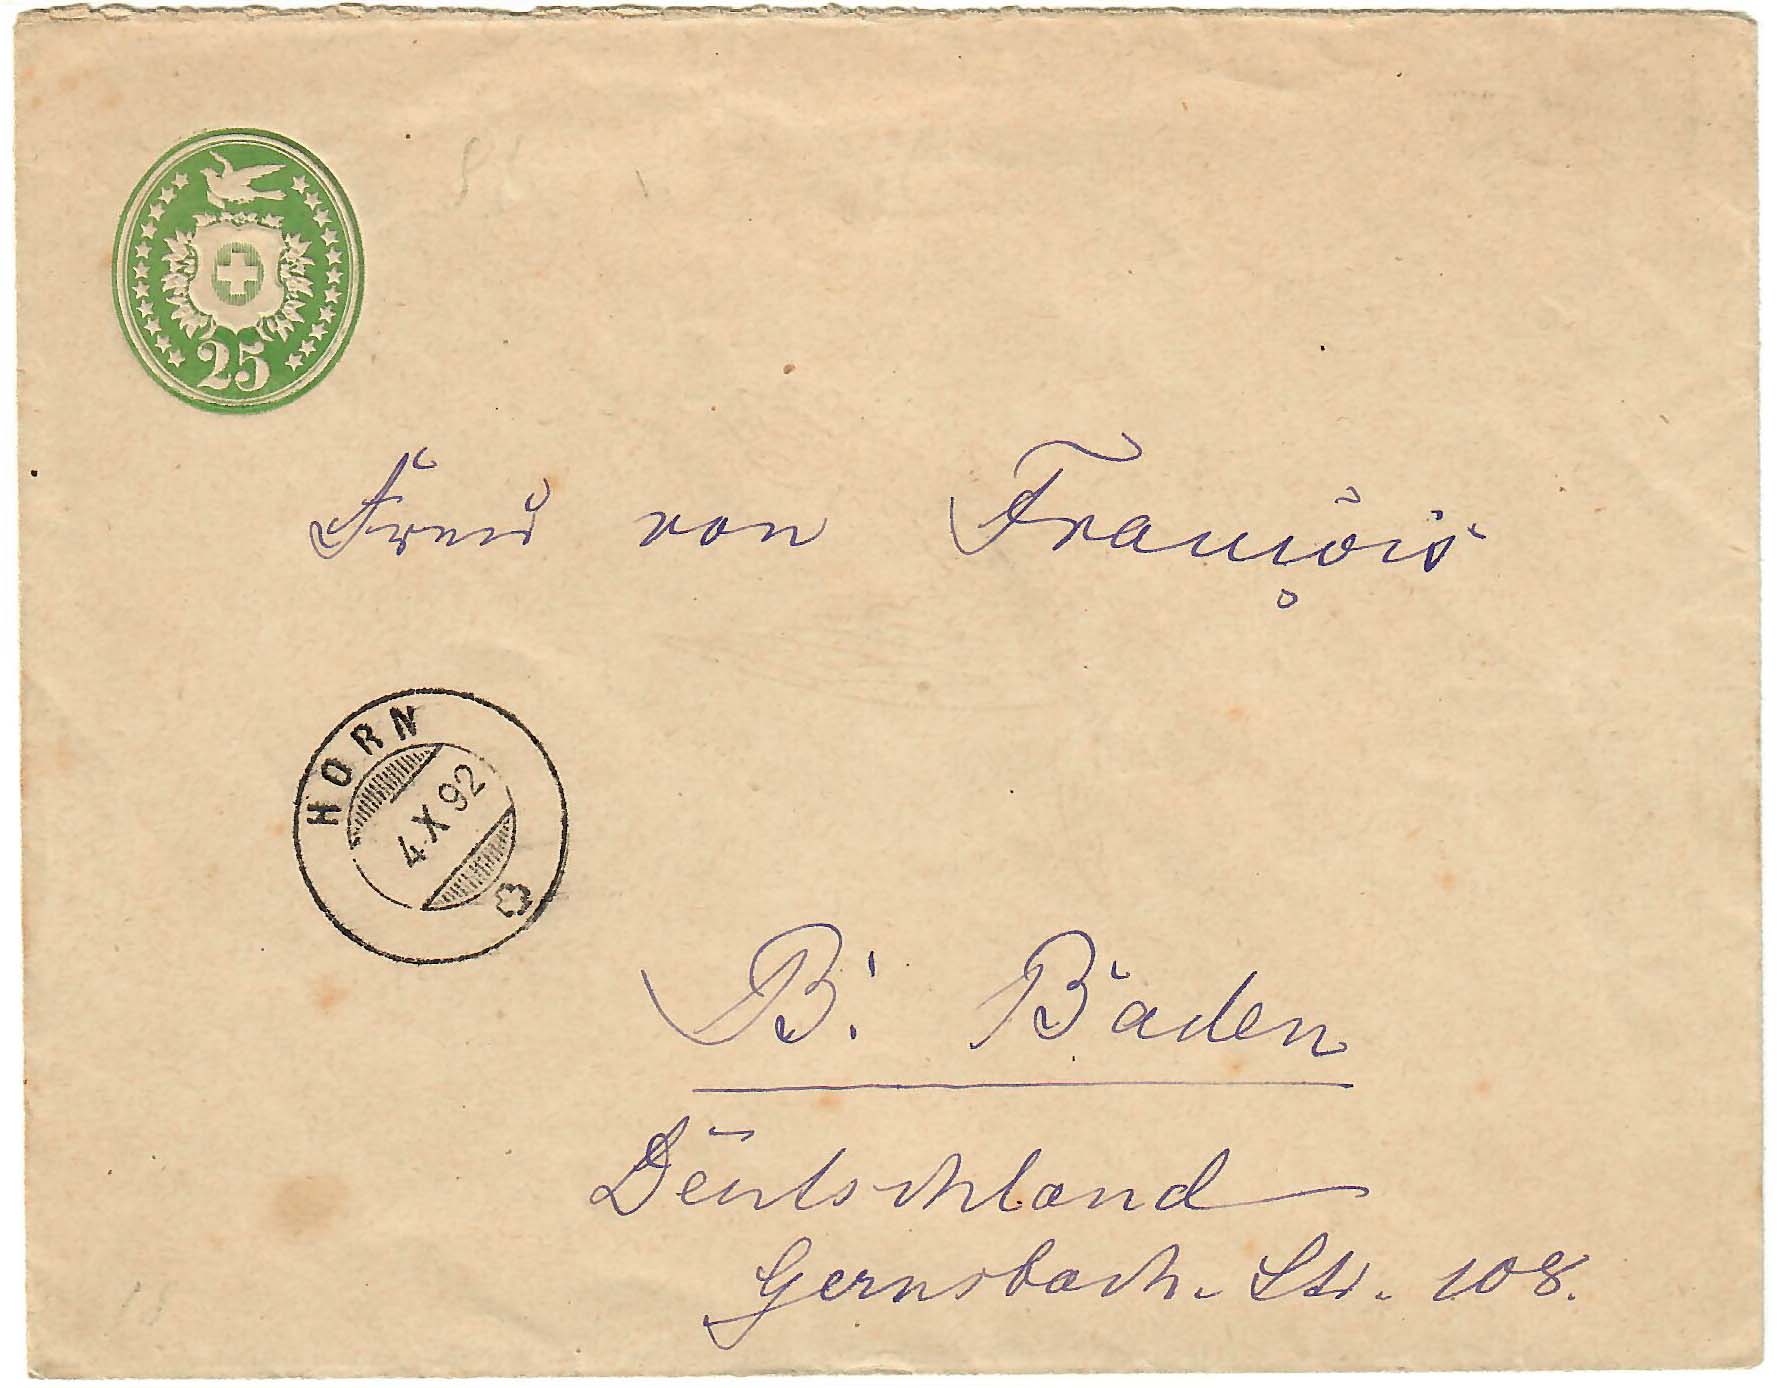 25
Frau von François
HORN
4.X 92
B. Baden
Deutschland
Gernsbach. Str. 108.